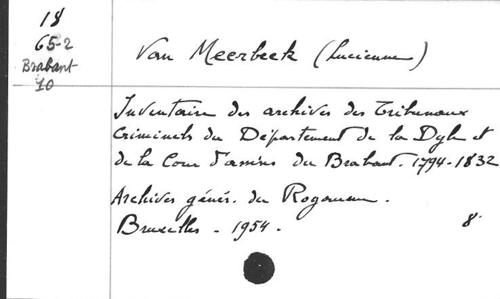 18
65-2
Brabant
10
Van Meerbeeck (Lucienne)
Inventaire des archives des Tribunaux
Criminels du Département de la Dyle et
de la Cour d'assises du Brabant. 1794-1832
Archives génér. du Royaume.
Bruxelles - 1954. 8°